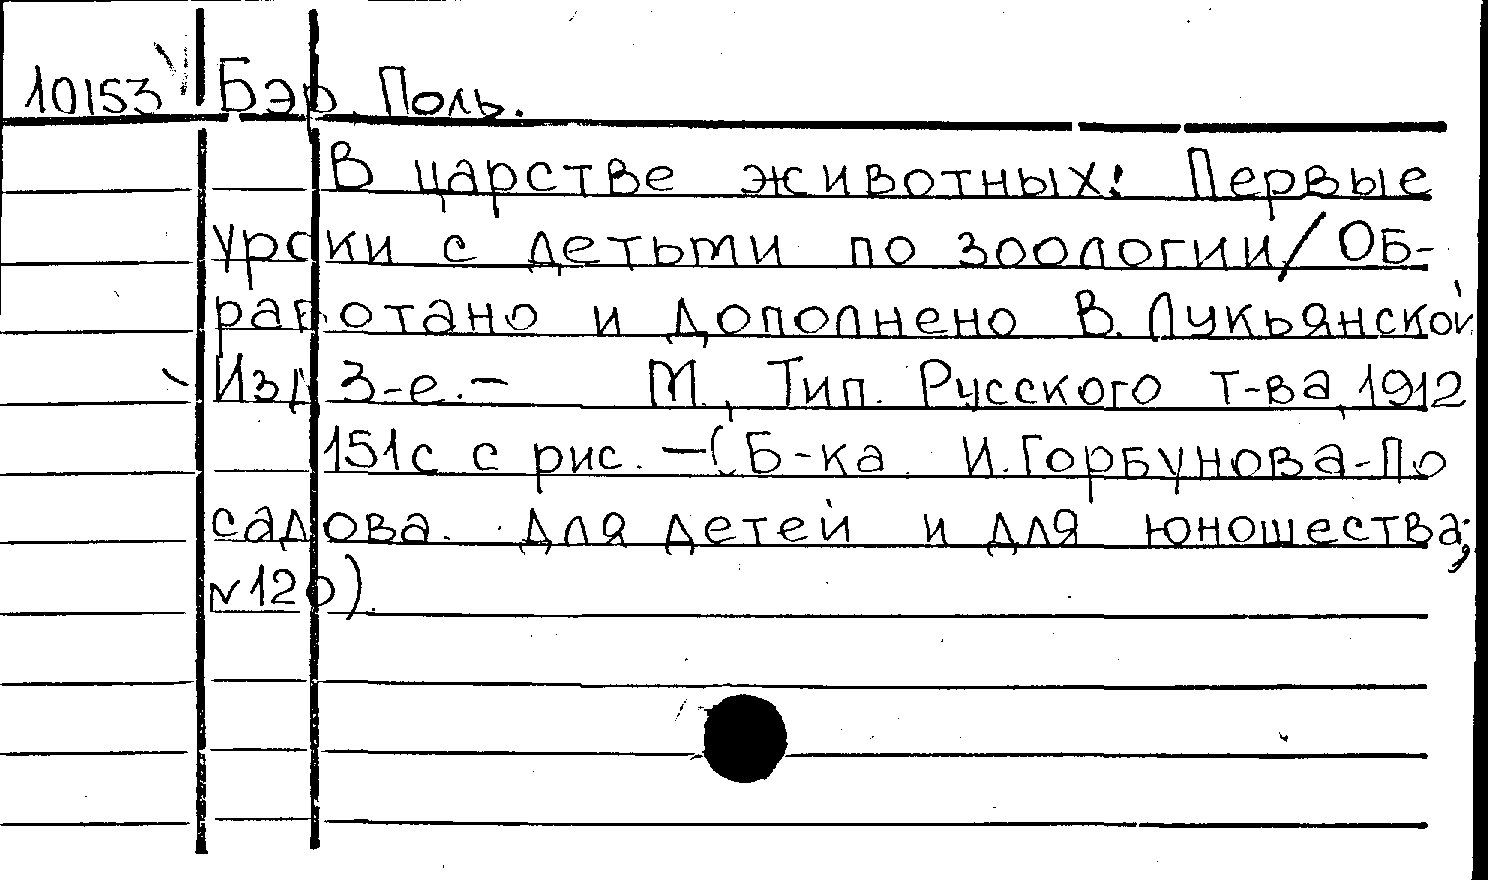 10153 Бэр, Поль.
В царстве животных: Первые
уроки с детьми по зоологии/Об-
работано и дополнено В. Лукьянской
Изд 3-е.- М., Тип. Русского т-ва, 1912
151с с рис. -(Б-ка И. Горбунова-По
садова. для детей и для юношества;
N120).